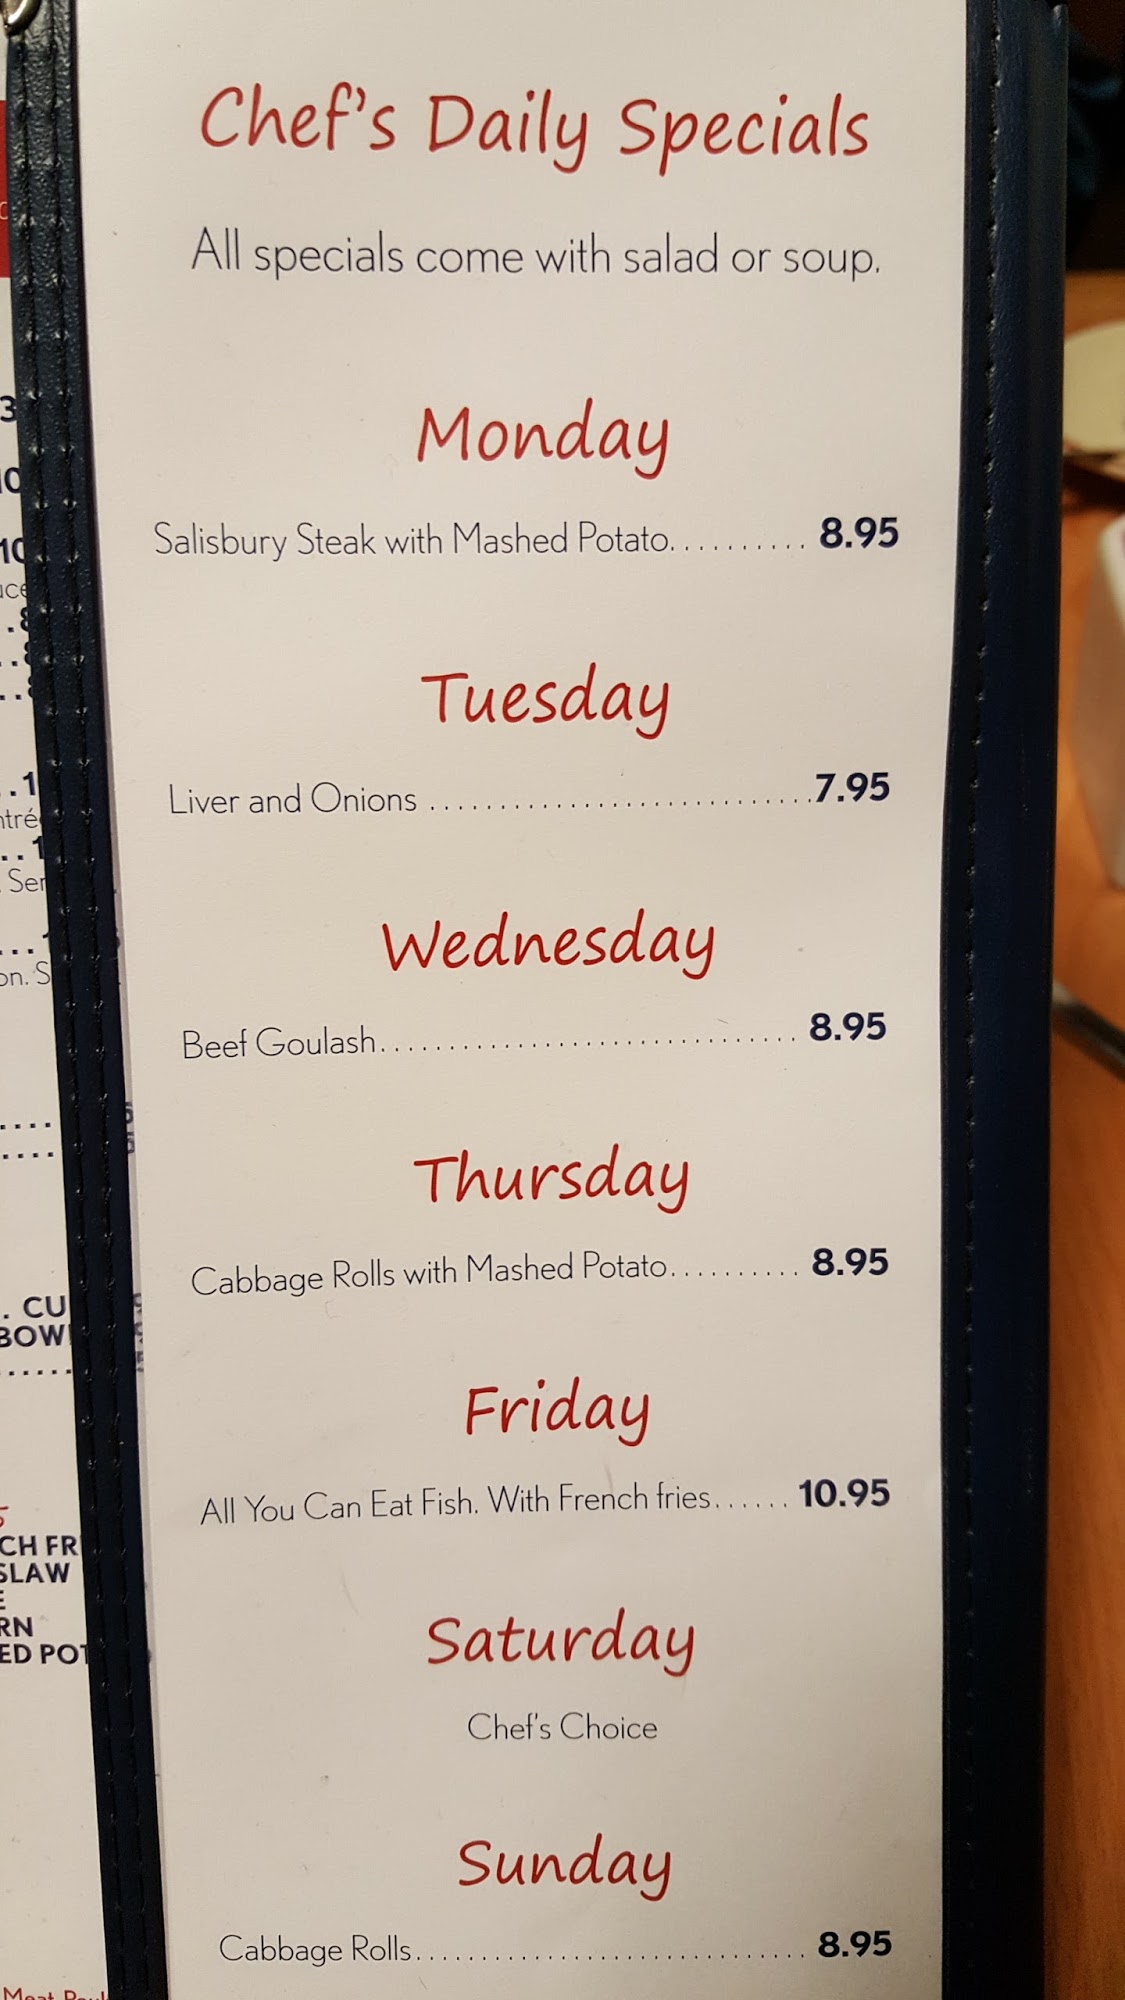 Chef's Daily Specials
All specials come with salad or soup.
Monday
Salisbury Steak with Mashed Potato.......... 8.95
Tuesday
Liver and Onions ............................7.95
Wednesday
Beef Goulash.............................. 8.95
Thursday
Cabbage Rolls with Mashed Potato.......... 8.95
Friday
All You Can Eat Fish. With French fries...... 10.95
Saturday
Chef's Choice
Sunday
Cabbage Rolls............................ 8.95
SLAW